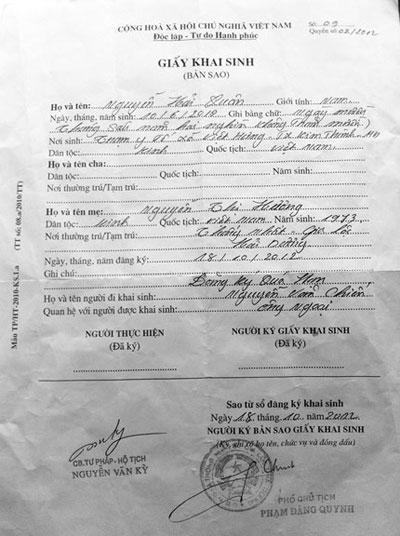 CỘNG HOÀ XÃ HỘI CHỦ NGHĨA VIỆT NAM
Độc lập - Tự do Hạnh phúc
Số: 09
Quyển số: 02/2012
GIẤY KHAI SINH
(BẢN SAO)
Họ và tên: Nguyễn Hải Luân Giới tính: Nam
Ngày, tháng, năm sinh: 10/6/2010 Ghi bằng chữ: Ngày mười
tháng sáu năm hai nghìn không trăm mười
Nơi sinh: Trạm y tế xã Việt Hưng
Dân tộc: Kinh Quốc tịch: Việt Nam
Họ và tên cha:
Dân tộc: Quốc tịch:
Nơi thường trú/Tạm trú:
Họ và tên mẹ: Nguyễn Thị Hường
Dân tộc: Kinh Quốc tịch: Việt Nam. Năm sinh: 1973
Nơi thường trú/Tạm trú: Thống nhất - Gia Lộc
Hải Dương
Ngày, tháng, năm đăng ký: 18/10/2012
Ghi chú: Đăng ký Quá Hạn
Họ và tên người đi khai sinh: Nguyễn Văn Chiến
Quan hệ với người được khai sinh: Ông Ngoại
NGƯỜI THỰC HIỆN
(Đã ký)
NGƯỜI KÝ GIẤY KHAI SINH
(Đã ký)
Sao từ sổ đăng ký khai sinh
Ngày 18 tháng 10 năm 2012
NGƯỜI KÝ BẢN SAO GIẤY KHAI SINH
(Ký, ghi rõ họ tên, chức vụ và đóng dấu)
CB.TƯ PHÁP - HỘ TỊCH
NGUYỄN VĂN KỲ
PHÓ CHỦ TỊCH
PHẠM ĐĂNG QUỲNH
Mẫu TP/HT-2010-KS.1.a (TT số: 08.a/2010/TT)